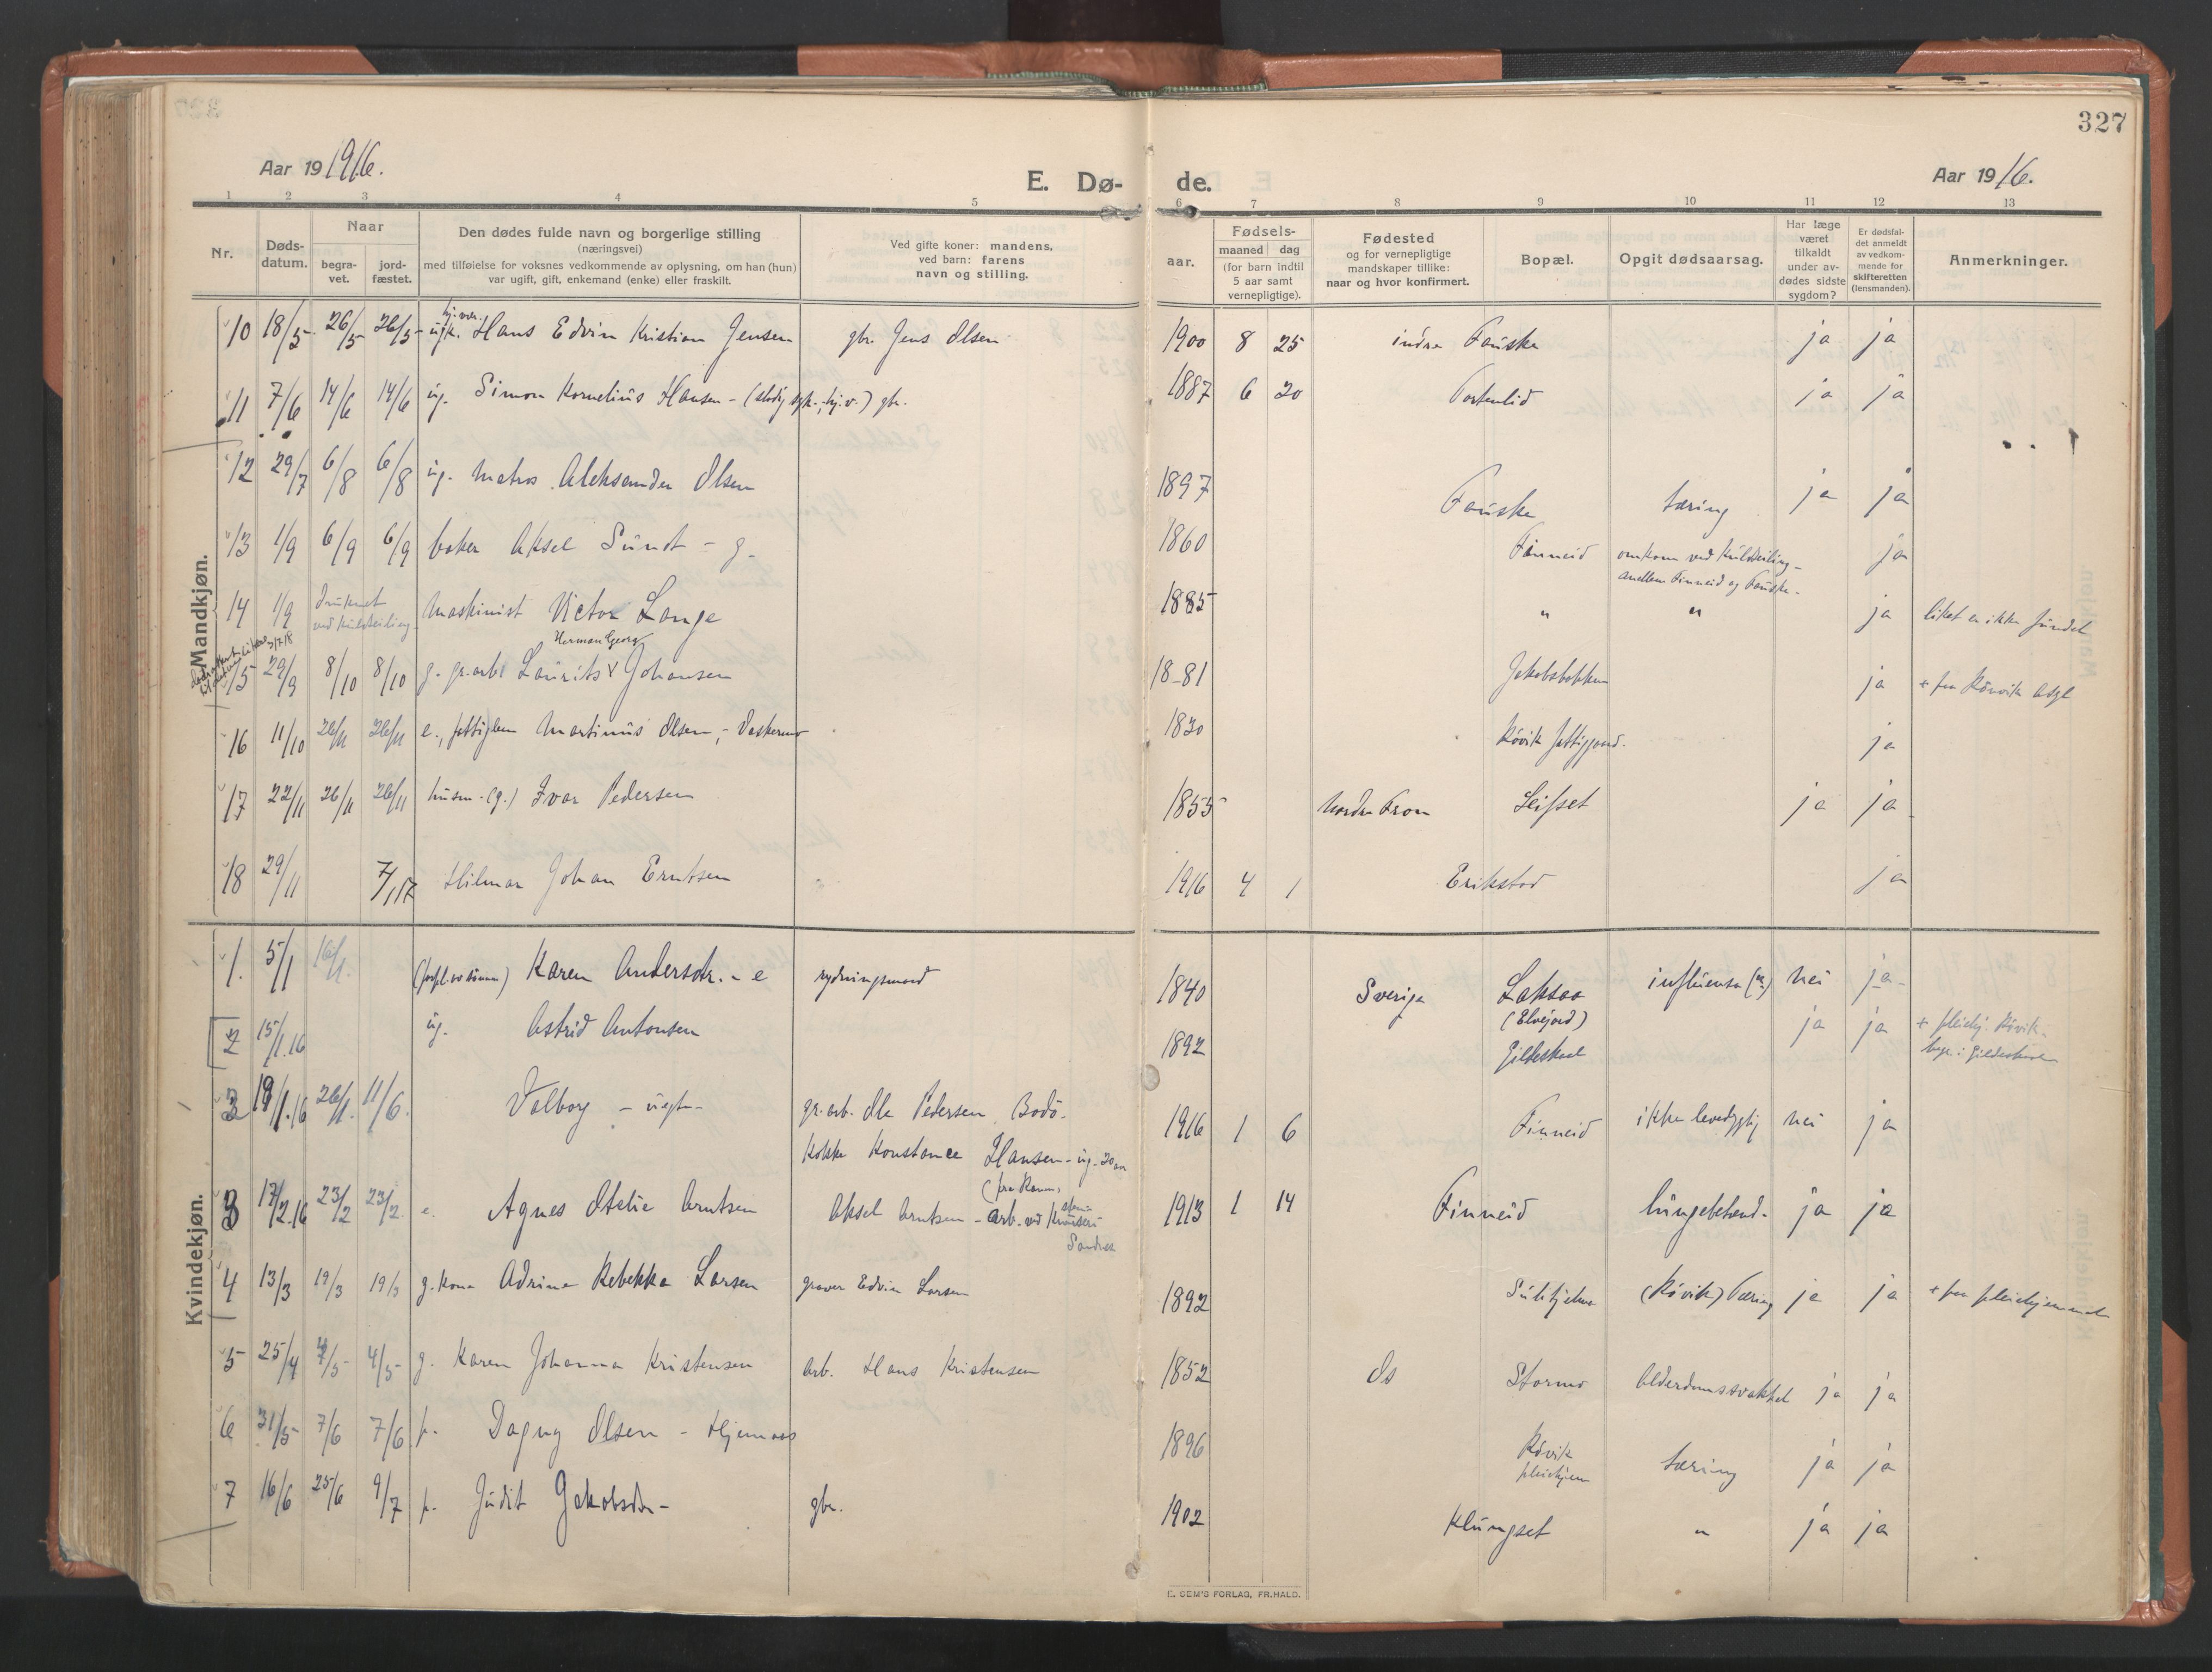 327
Aar 19 1916.
E. Dø- de.
Aar 19 16.
1 2 3 4 5 6 7 8 9 10 11 12 13
Nr.
Døds-datum.
Naar
begra-vet.
jord-fæstet.
Den dødes fulde navn og borgerlige stilling
(næringsvei)
med tilføielse for voksnes vedkommende av oplysning, om han (hun)
var ugift, gift, enkemand (enke) eller fraskilt.
Ved gifte koner: mandens,
ved barn: farens
navn og stilling.
aar.
Fødsels-
maaned dag
(for barn indtil
5 aar samt
vernepligtige).
Fødested
og for vernepligtige
mandskaper tillike:
naar og hvor konfirmert.
Bopæl.
Opgit dødsaarsag.
Har læge
været
tilkaldt
under av-
dødes sidste
sygdom?
Er dødsfal-
det anmeldt
av vedkom-
mende for
skifteretten
(lensmanden).
Anmerkninger.
Mandkjøn.
10 18/5 26/5 26/5 ugk. Hans Edvin Kristian Jensen gbr. Jens Olsen 1900 8 25 indre Fauske ja ja
11 7/6 14/6 14/6 ug. Simon Kornelius Hansen - gbr. 1887 6 20 Tortenlid ja ja
12 29/7 6/8 6/8 ug. matros Aleksander Olsen 1897 Fauske tæring ja ja
13 1/9 6/9 6/9 baker Aksel Sundt - g. 1860 Finneid omkom ved kulseiling - ja
mellem Finneid og Fauske.
14 1/9 druknet ved kulseiling Maskinist Victor Lange 1885 " " ja liket er ikke fundet
Herman Georg
15 29/9 8/10 8/10 g. gr.arb. Laurits Johansen 18-81 Jakobsbakken ja + paa Røvik
16 11/10 26/11 26/11 e., fattiglem Martinus Olsen, - Vaskermo 1830 Røvik fattiggaard. ja
17 22/11 26/11 26/11 husm. (g.) Ivar Pedersen 1855 Nordre Fron Leifset ja ja
18 29/11 7/1 17 Hilmar Johan Erntsen 1916 4 1 Erikstad ja
Kvindekjøn.
1. 5/1 16/1. Karen Andersdtr. - e rydningsmand 1840 Sverige Laksaa influensa nei ja
(Elvejord)
2 15/1.16 ug. Astrid Antonsen 1892 Gildeskaal ja ja + pleiehj. Røvik.
begr. i Gildeskaal
3 19/1.16 26/1. 11/6. Valborg - uegte - gr.arb. Ole Pedersen Bodø. 1916 1 6 Finneid ikke levedygtig nei ja
Kokke Konstance Hansen - ug. 20 aar
3 17/2.16 23/2 23/2. e. Agnes Otelie Arntsen Aksel Arntsen - arb. ved 1913 1 14 Finneid lungebetænd. ja ja
Sandnes
4 13/3 19/3 19/3 g. kone Adrine Rebekka Larsen graver Edvin Larsen 1892 Sulitjelma (Røvik) Tæring ja ja + paa pleiehjemmet
5 25/4 4/5 4/5 g. Karen Johanna Kristensen arb. Hans Kristensen 1852 Os Stormo Alderdomssvakhet ja ja
6 31/5 7/6 7/6 p. Dagny Olsen - Hjemaas 1896 Røvik pleiehjem tæring ja ja
7 16/6 25/6 9/7 p. Judit Jakobsdtr - gbr. 1902 Klungset " ja ja
E. SEM'S FORLAG, FR.HALD.